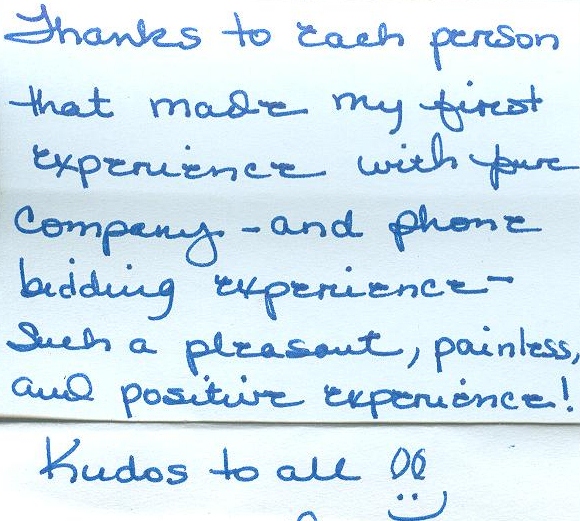 Thanks to each person
that made my first
experience with
Company - and phone
bidding experience -
Such a pleasant, painless,
and positive experience!
Kudos to all